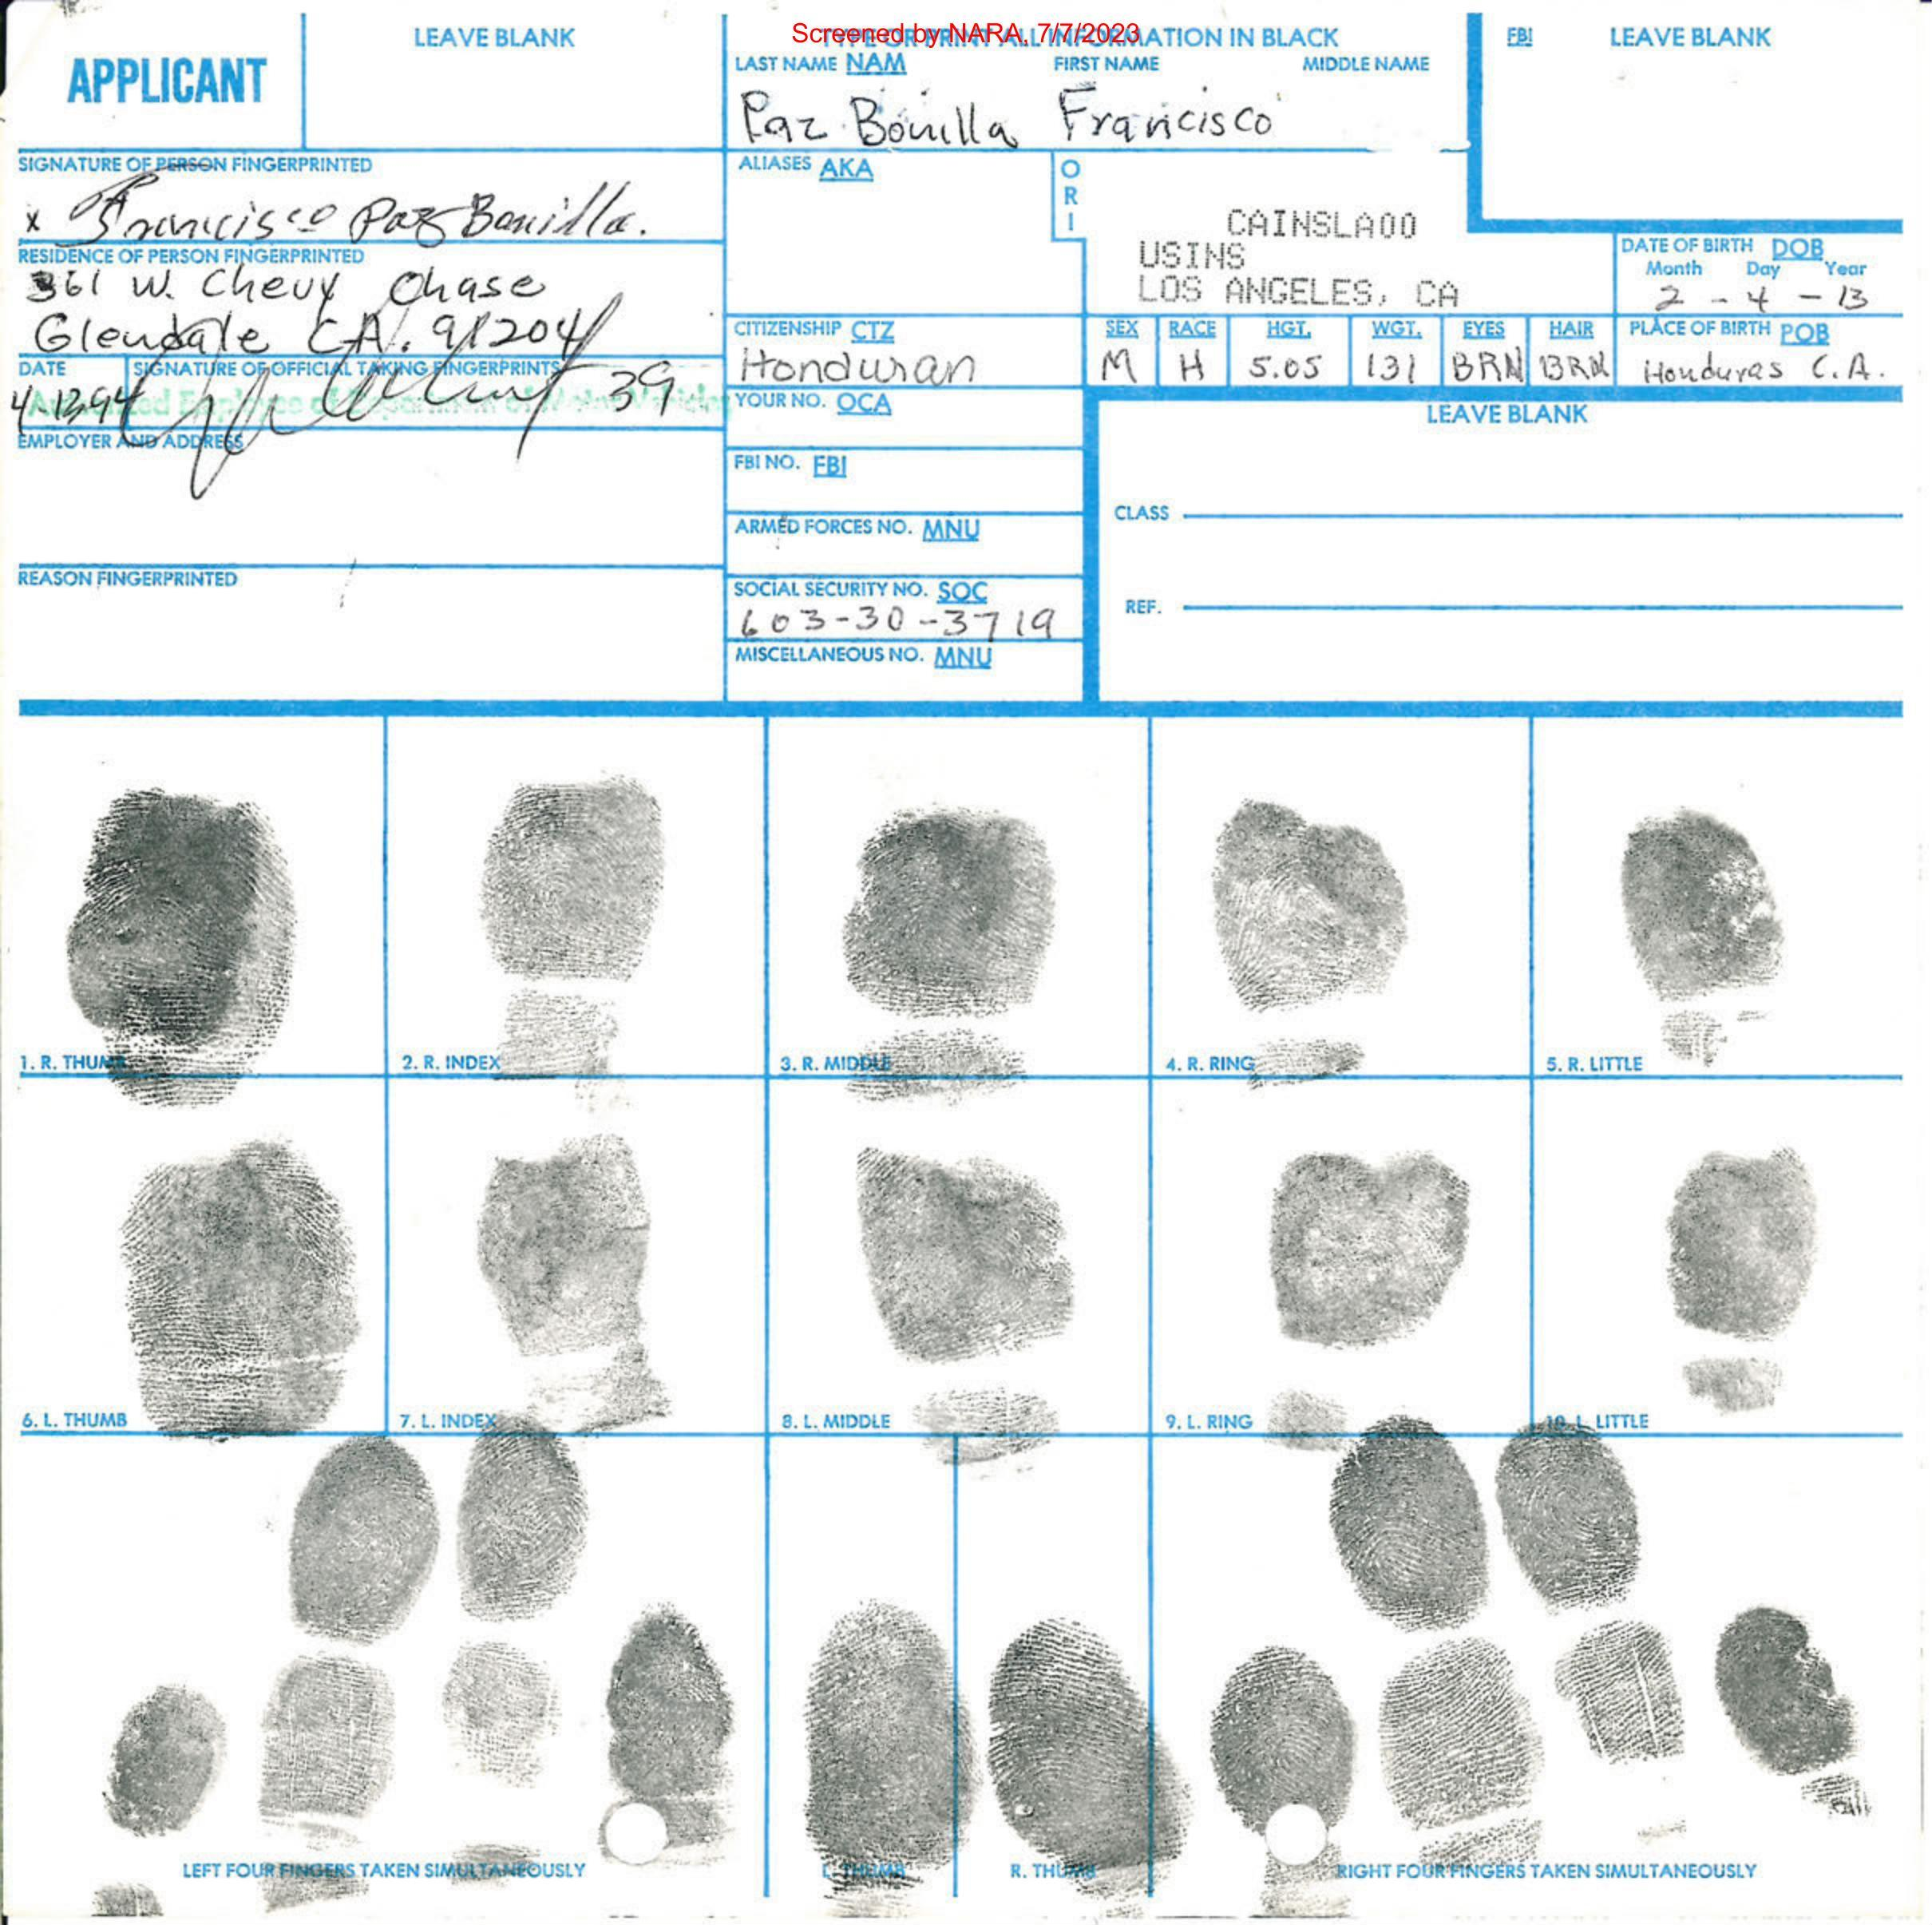 Screened by NARA, 7/7/2023
APPLICANT
LEAVE BLANK
TYPE OR PRINT ALL INFORMATION IN BLACK
LAST NAME NAM FIRST NAME MIDDLE NAME
Paz Bonilla Francisco
FBI LEAVE BLANK
SIGNATURE OF PERSON FINGERPRINTED
x Francisco Paz Bonilla.
RESIDENCE OF PERSON FINGERPRINTED
361 W. Chevy Chase
Glendale CA. 91204
DATE SIGNATURE OF OFFICIAL TAKING FINGERPRINTS
4-1394 39
Employee of Department of Motor Vehicles
EMPLOYER AND ADDRESS
REASON FINGERPRINTED
ALIASES AKA
ORI
CAINSLA00
USINS
LOS ANGELES, CA
DATE OF BIRTH DOB
Month Day Year
2 - 4 - 13
CITIZENSHIP CTZ
Honduran
SEX RACE HGT. WGT. EYES HAIR PLACE OF BIRTH POB
M H 5.05 131 BRN BRN Honduras C.A.
YOUR NO. OCA
FBI NO. FBI
ARMED FORCES NO. MNU
SOCIAL SECURITY NO. SOC
603-30-3719
MISCELLANEOUS NO. MNU
LEAVE BLANK
CLASS
REF.
1. R. THUMB
2. R. INDEX
3. R. MIDDLE
4. R. RING
5. R. LITTLE
6. L. THUMB
7. L. INDEX
8. L. MIDDLE
9. L. RING
10. L. LITTLE
LEFT FOUR FINGERS TAKEN SIMULTANEOUSLY
L. THUMB
R. THUMB
RIGHT FOUR FINGERS TAKEN SIMULTANEOUSLY